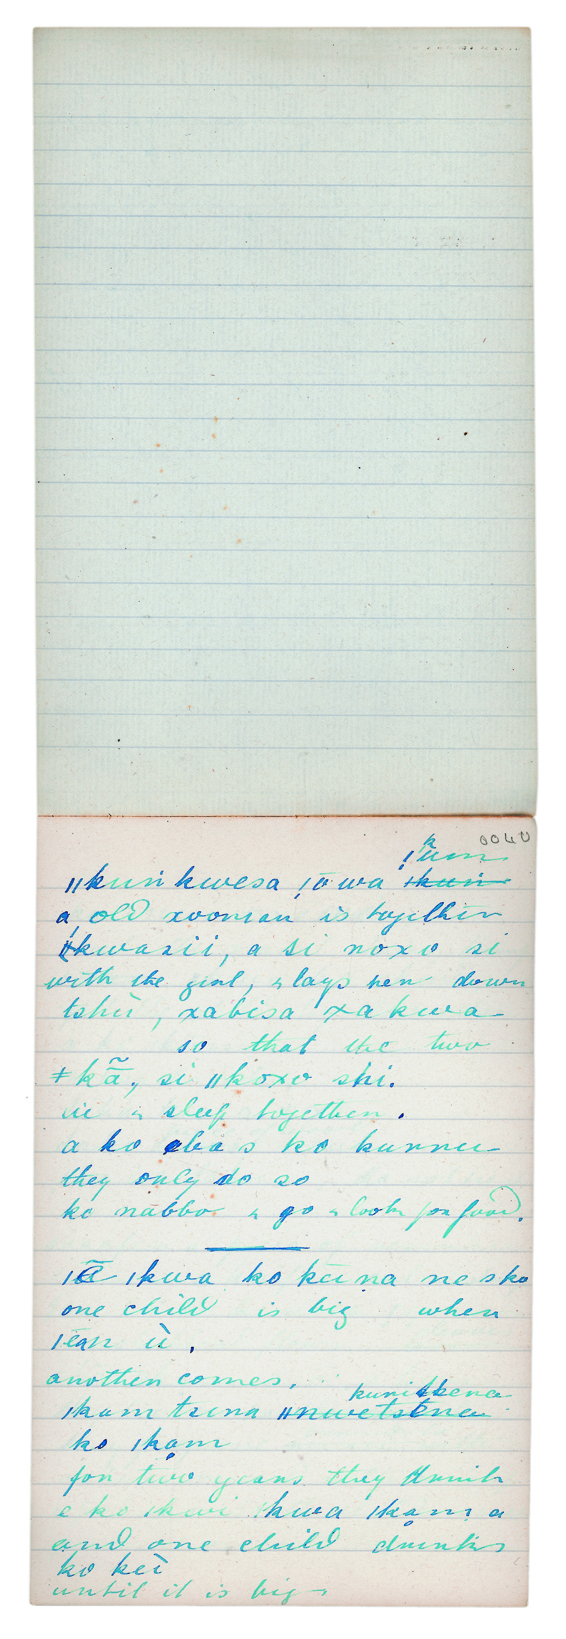 0040
ǃkũm
ǁkuṅ kwesa ǀō wa ǃkuṅ
a old woman is together
ǁkwasii, a si noxo si
with the girl, & lays her down
tshù, xabisa xa kwa
so that the two
ǂkã, si ǁkoxo shi.
lie & sleep together.
a ko aba s ko kunnu
they only do so
ko nabbo & go & look for food.
ǀã ǀkwa ko kēi na ne s ko
one child is big when
ǀēan ù.
another comes.
kuni
ǀkam tsina ǁnwetsena
ko ǀkam
for two years they drink
e ko ǀkwi ǀkwa ǀkam a
and one child drinks
ko keì
until it is big.